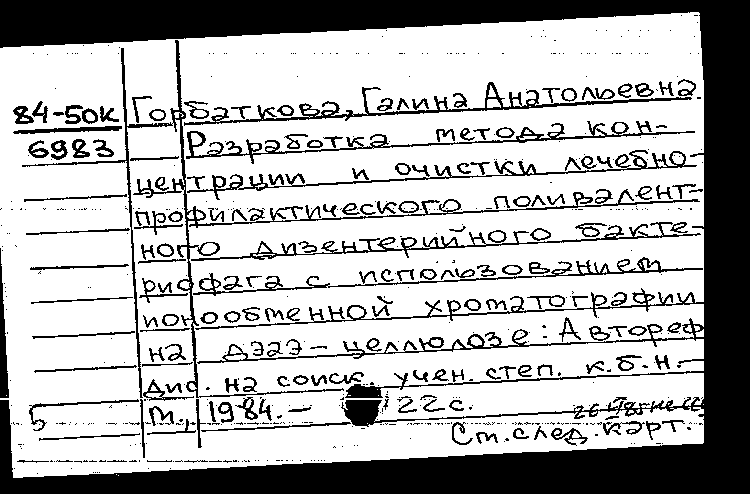 84-50к Горбаткова, Галина Анатольевна.
6983 Разработка метода кон-
центрации и очистки лечебно-
профилактического поливалент-
ного дизентерийного бакте-
риофага с использованием
ионообменной хроматографии
на ДЭАЭ-целлюлозе: Автореф
дис. на соиск. учен. степ. к.б.н.-
5 М., 1984.- 22 с.
См. след. карт.